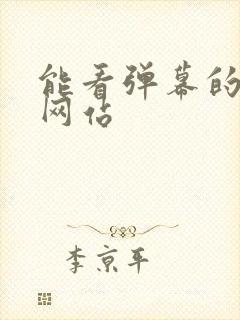 能看弹幕的
网站
李京平